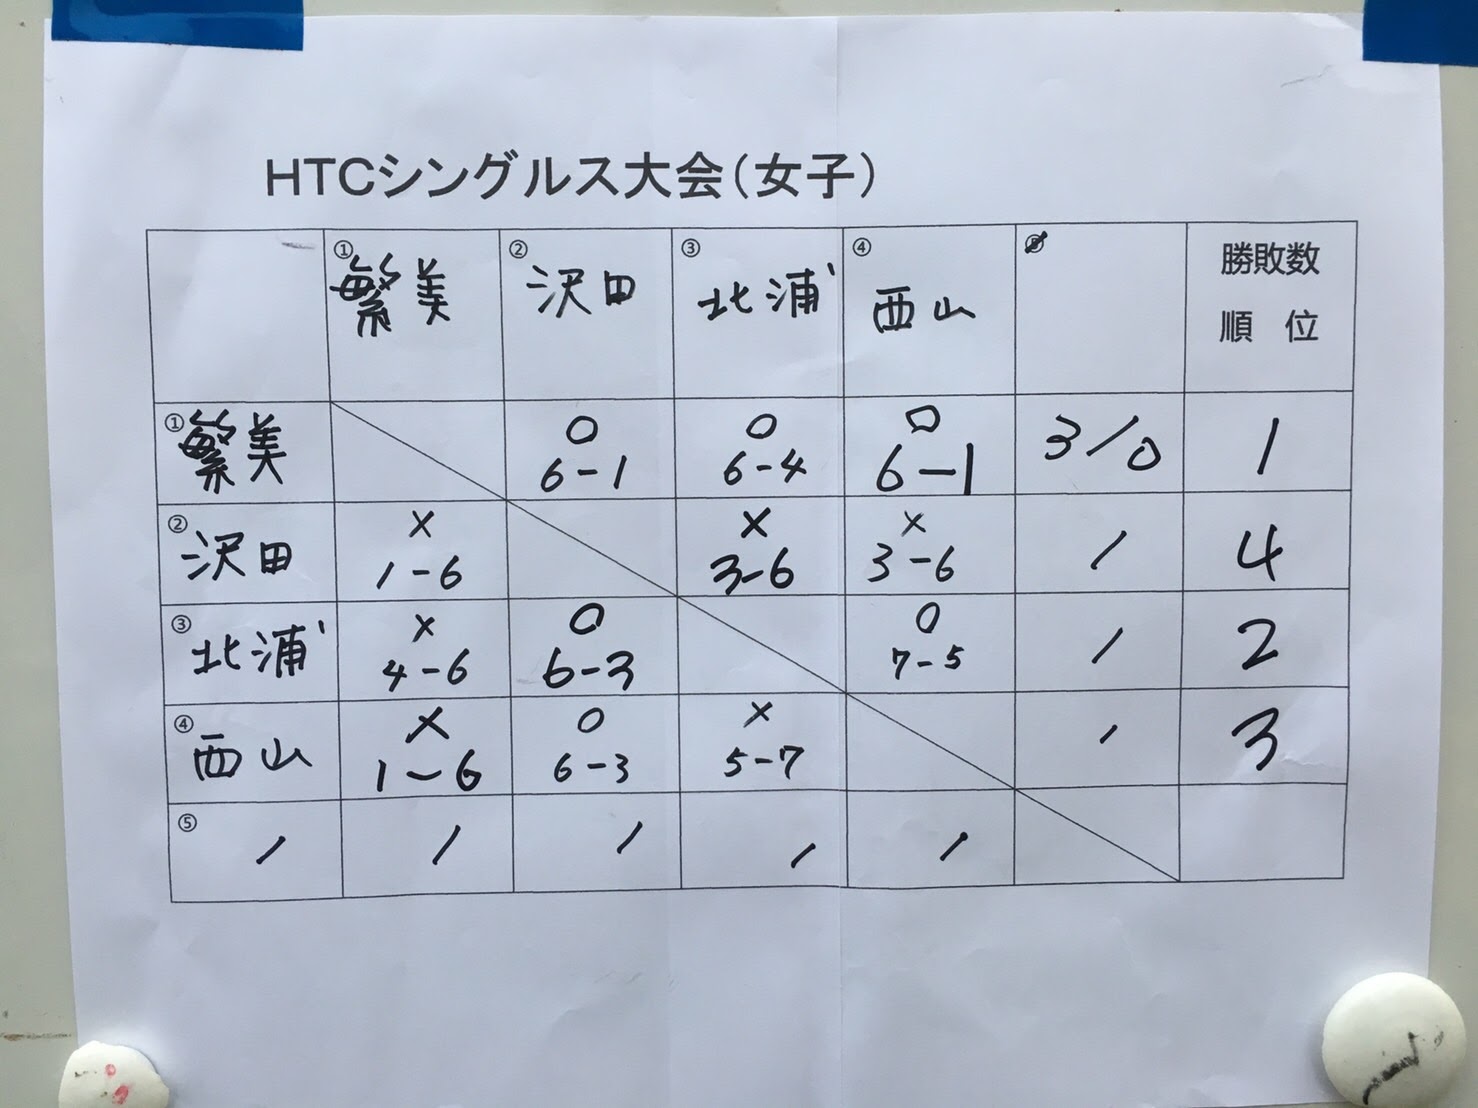 HTCシングルス大会（女子）
① ② ③ ④ ⑤ 勝敗数
繁美 沢田 北浦 西山 順 位
① 繁美 ○ ○ ○ 3/0 1
6-1 6-4 6-1
② 沢田 × × × / 4
1-6 3-6 3-6
③ 北浦 × ○ ○ / 2
4-6 6-3 7-5
④ 西山 × ○ × / 3
1-6 6-3 5-7
⑤ / / / / /